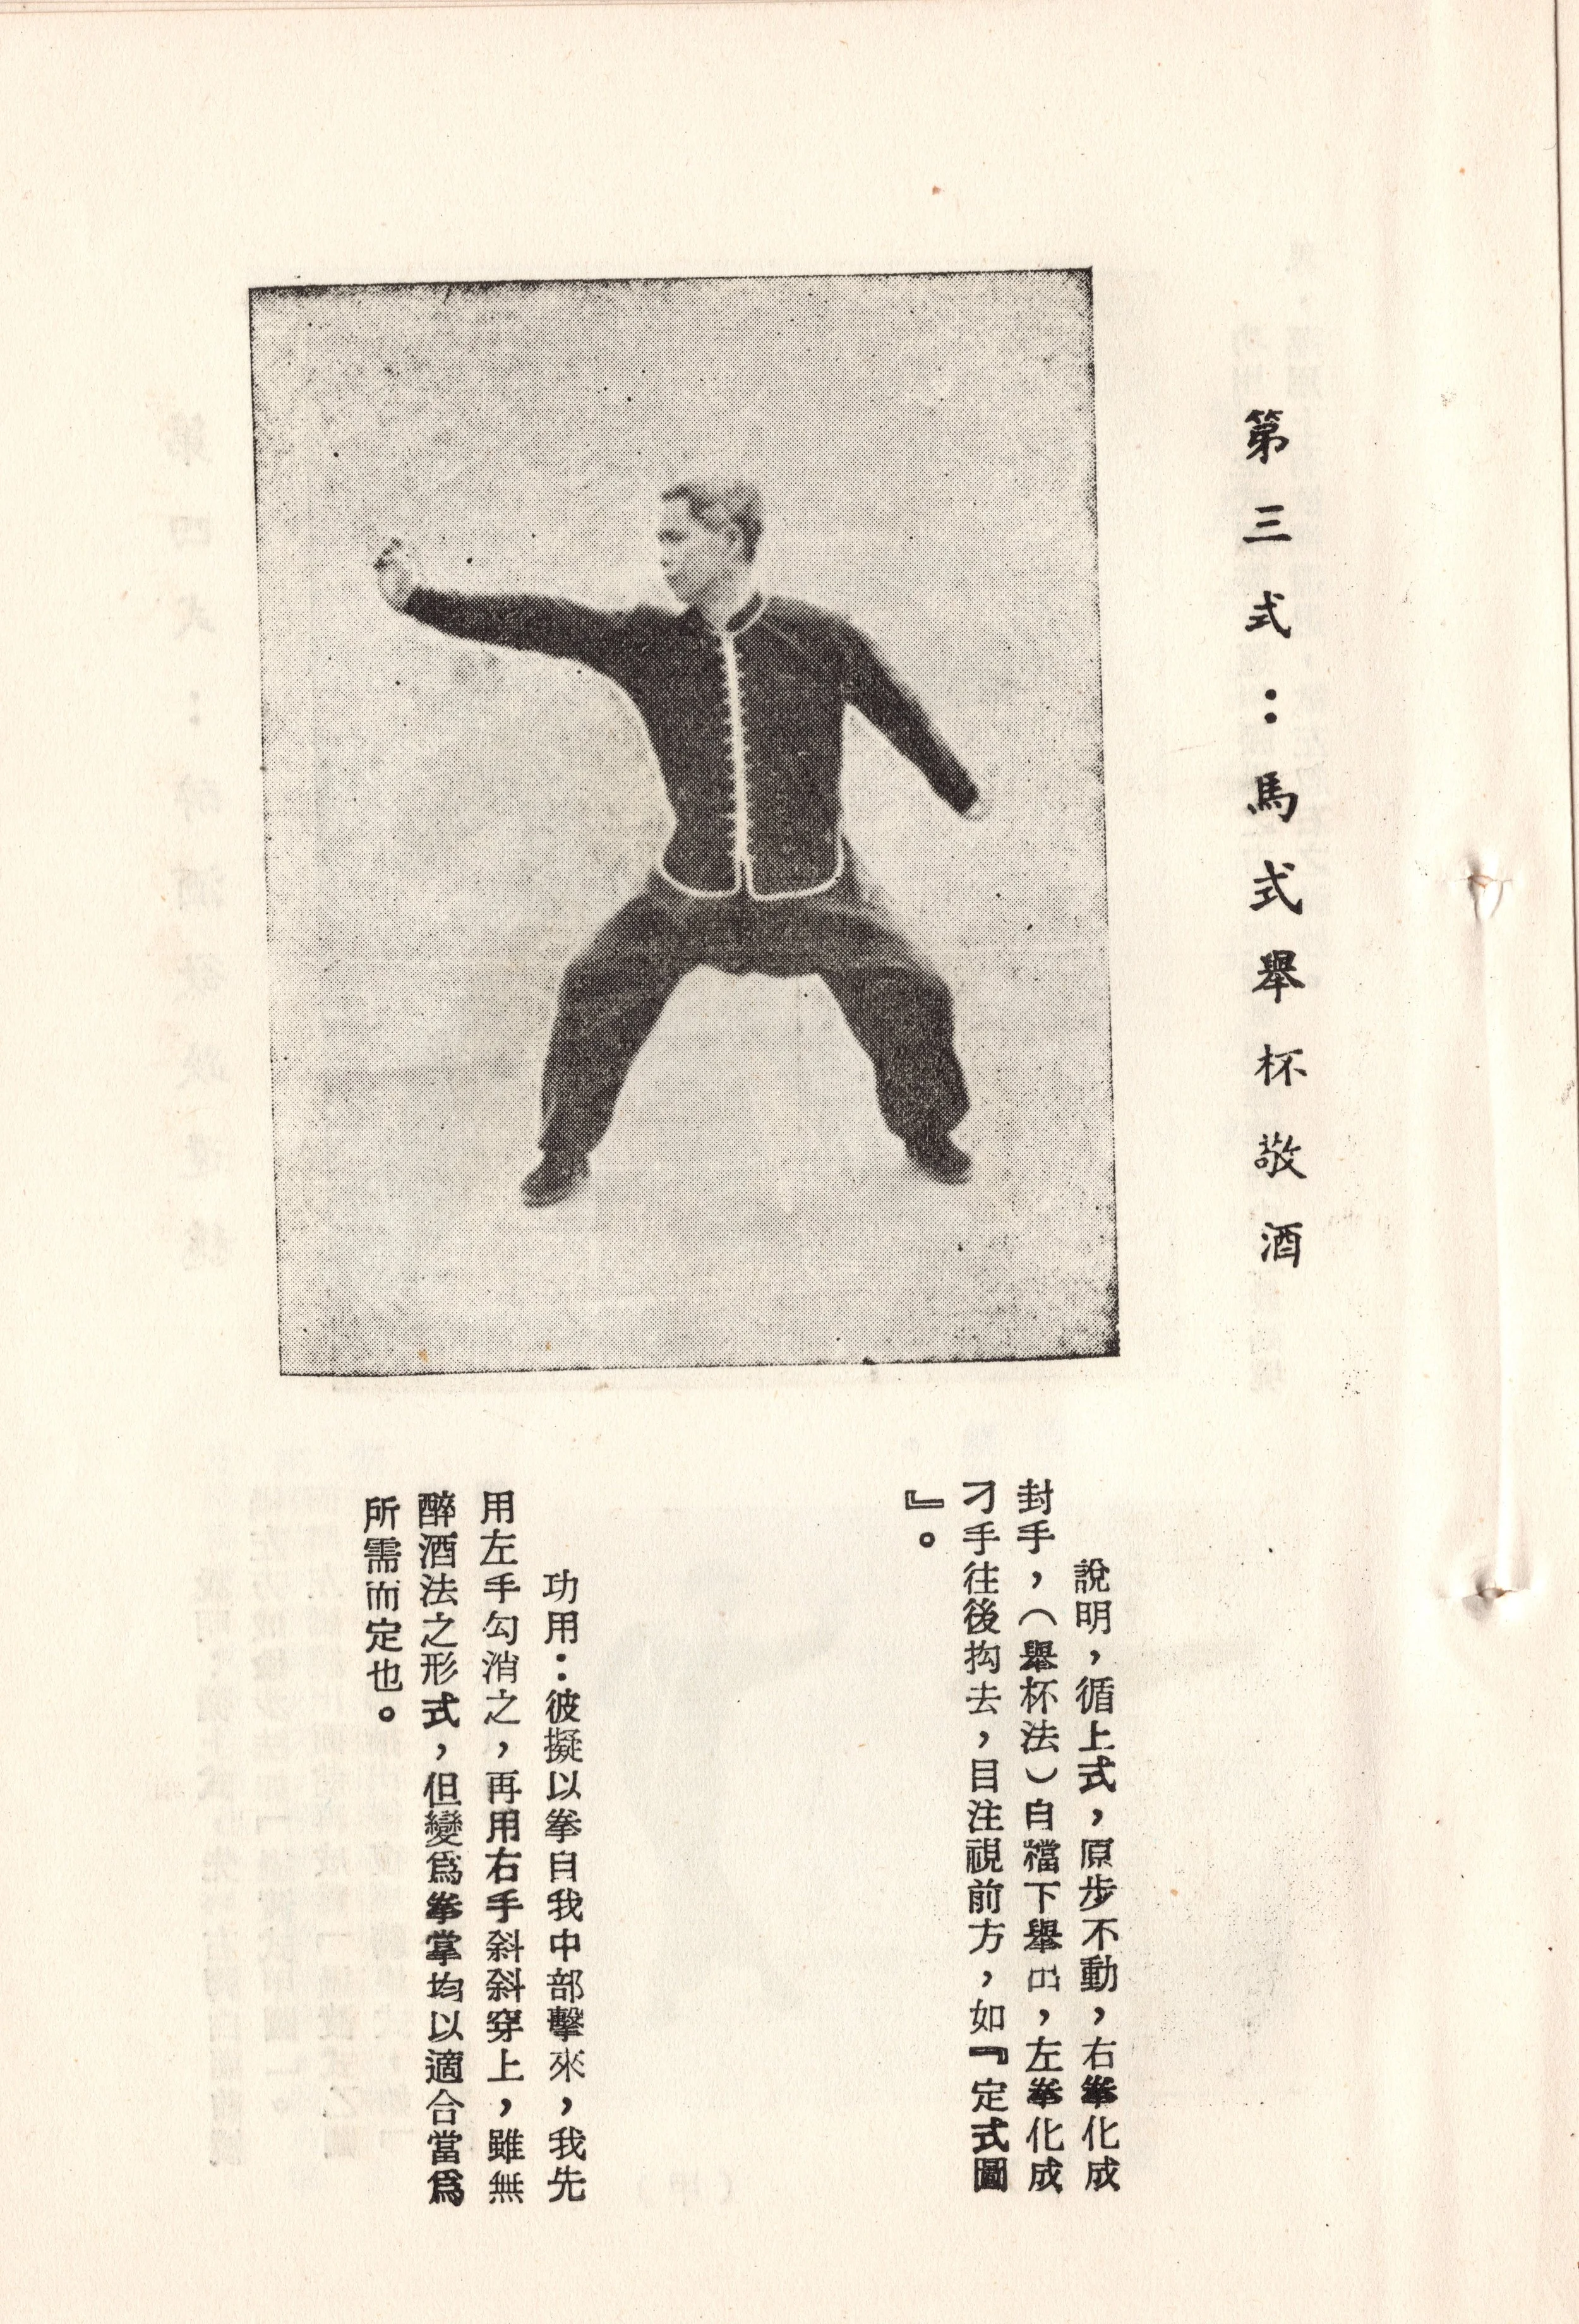 第三式：馬式舉杯敬酒
說明，循上式，原步不動，右拳化成
封手，（舉杯法）自襠下舉出，左拳化成
刁手往後抅去，目注視前方，如『定式圖
』。
功用：彼擬以拳自我中部擊來，我先
用左手勾消之，再用右手斜斜穿上，雖無
醉酒法之形式，但變爲拳掌均以適合當爲
所需而定也。